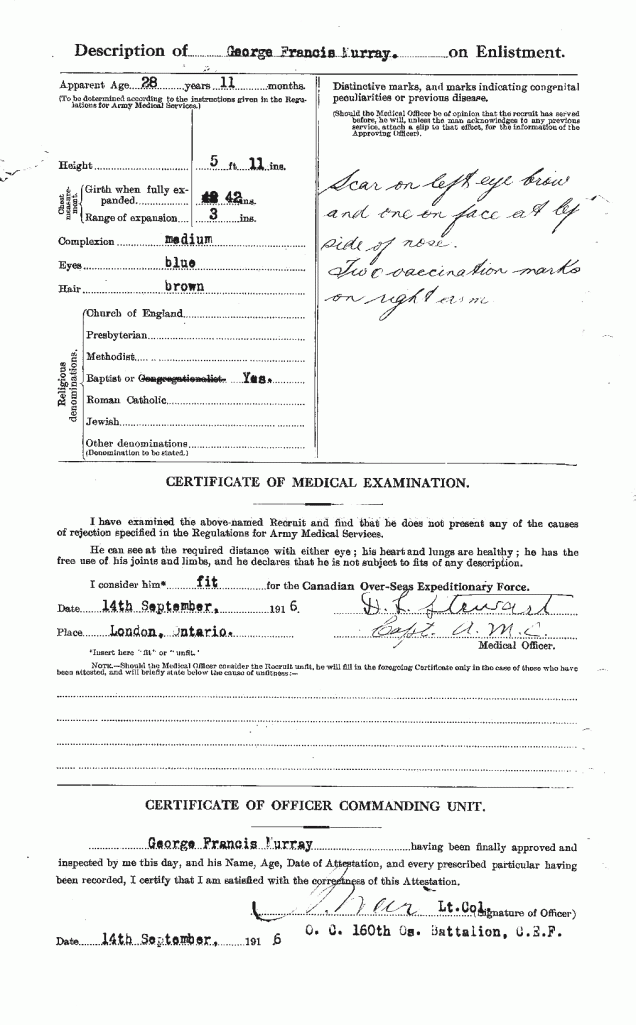 Description of George Francis Murray. on Enlistment.
Apparent Age 28 years 11 months.
(To be determined according to the instructions given in the Regulations for Army Medical Services.)
Height 5 ft. 11 ins.
Chest measurement.
Girth when fully expanded 42 ins.
Range of expansion 3 ins.
Complexion medium
Eyes blue
Hair brown
Religious denominations.
Church of England
Presbyterian
Methodist
Baptist or Congregationalist Yes.
Roman Catholic
Jewish
Other denominations
(Denomination to be stated.)
Distinctive marks, and marks indicating congenital
peculiarities or previous disease.
(Should the Medical Officer be of opinion that the recruit has served
before, he will, unless the man acknowledges to any previous
service, attach a slip to that effect, for the information of the
Approving Officer).
Scar on left eye brow
and one on face at lef
side of nose.
Two vaccination marks
on right arm
CERTIFICATE OF MEDICAL EXAMINATION.
I have examined the above-named Recruit and find that he does not present any of the causes
of rejection specified in the Regulations for Army Medical Services.
He can see at the required distance with either eye; his heart and lungs are healthy; he has the
free use of his joints and limbs, and he declares that he is not subject to fits of any description.
I consider him* fit for the Canadian Over-Seas Expeditionary Force.
Date 14th September, 1916. D. L. Stewart
Place London, Ontario. Capt. A.M.C.
Medical Officer.
*Insert here "fit" or "unfit."
NOTE.—Should the Medical Officer consider the Recruit unfit, he will fill in the foregoing Certificate only in the case of those who have
been attested, and will briefly state below the cause of unfitness:—
CERTIFICATE OF OFFICER COMMANDING UNIT.
George Francis Murray having been finally approved and
inspected by me this day, and his Name, Age, Date of Attestation, and every prescribed particular having
been recorded, I certify that I am satisfied with the correctness of this Attestation.
Lt.Col. (Signature of Officer)
Date 14th September, 1916 O. C. 160th Os. Battalion, C.E.F.